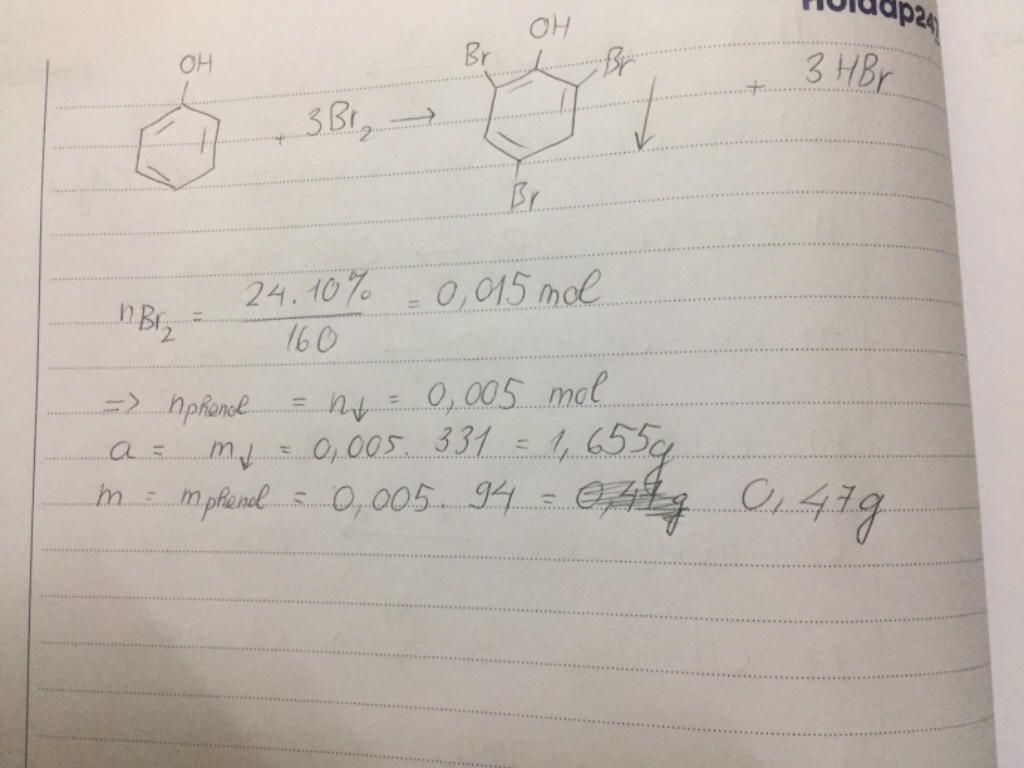 Hoidap247
OH + 3Br₂ → OH Br Br Br ↓ + 3 HBr
nBr₂ = 24.10% / 160 = 0,015 mol
=> nphenol = n↓ = 0,005 mol
a = m↓ = 0,005. 331 = 1,655g
m = mphenol = 0,005. 94 = 0,47g